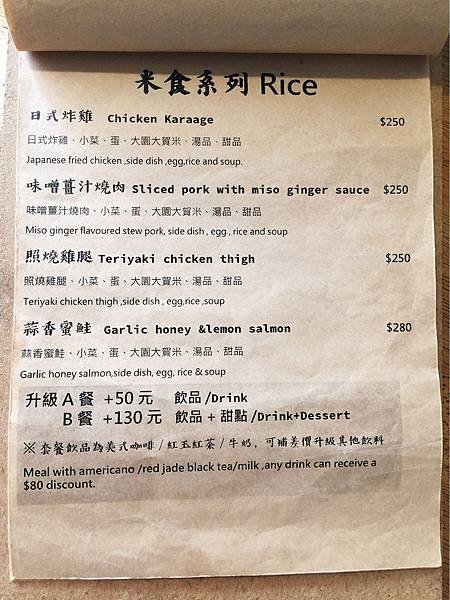 米食系列 Rice
日式炸雞 Chicken Karaage $250
日式炸雞、小菜、蛋、大園大賀米、湯品、甜品
Japanese fried chicken ,side dish ,egg,rice and soup.
味噌薑汁燒肉 Sliced pork with miso ginger sauce $250
味噌薑汁燒肉、小菜、蛋、大園大賀米、湯品、甜品
Miso ginger flavoured stew pork, side dish , egg , rice and soup
照燒雞腿 Teriyaki chicken thigh $250
照燒雞腿、小菜、蛋、大園大賀米、湯品、甜品
Teriyaki chicken thigh ,side dish , egg,rice ,soup
蒜香蜜鮭 Garlic honey &lemon salmon $280
蒜香蜜鮭、小菜、蛋、大園大賀米、湯品、甜品
Garlic honey salmon,side dish, egg, rice & soup
升級 A 餐 +50 元 飲品 /Drink
B 餐 +130 元 飲品 + 甜點 /Drink+Dessert
※ 套餐飲品為美式咖啡 / 紅玉紅茶 / 牛奶，可補差價升級其他飲料
Meal with americano /red jade black tea/milk ,any drink can receive a
$80 discount.